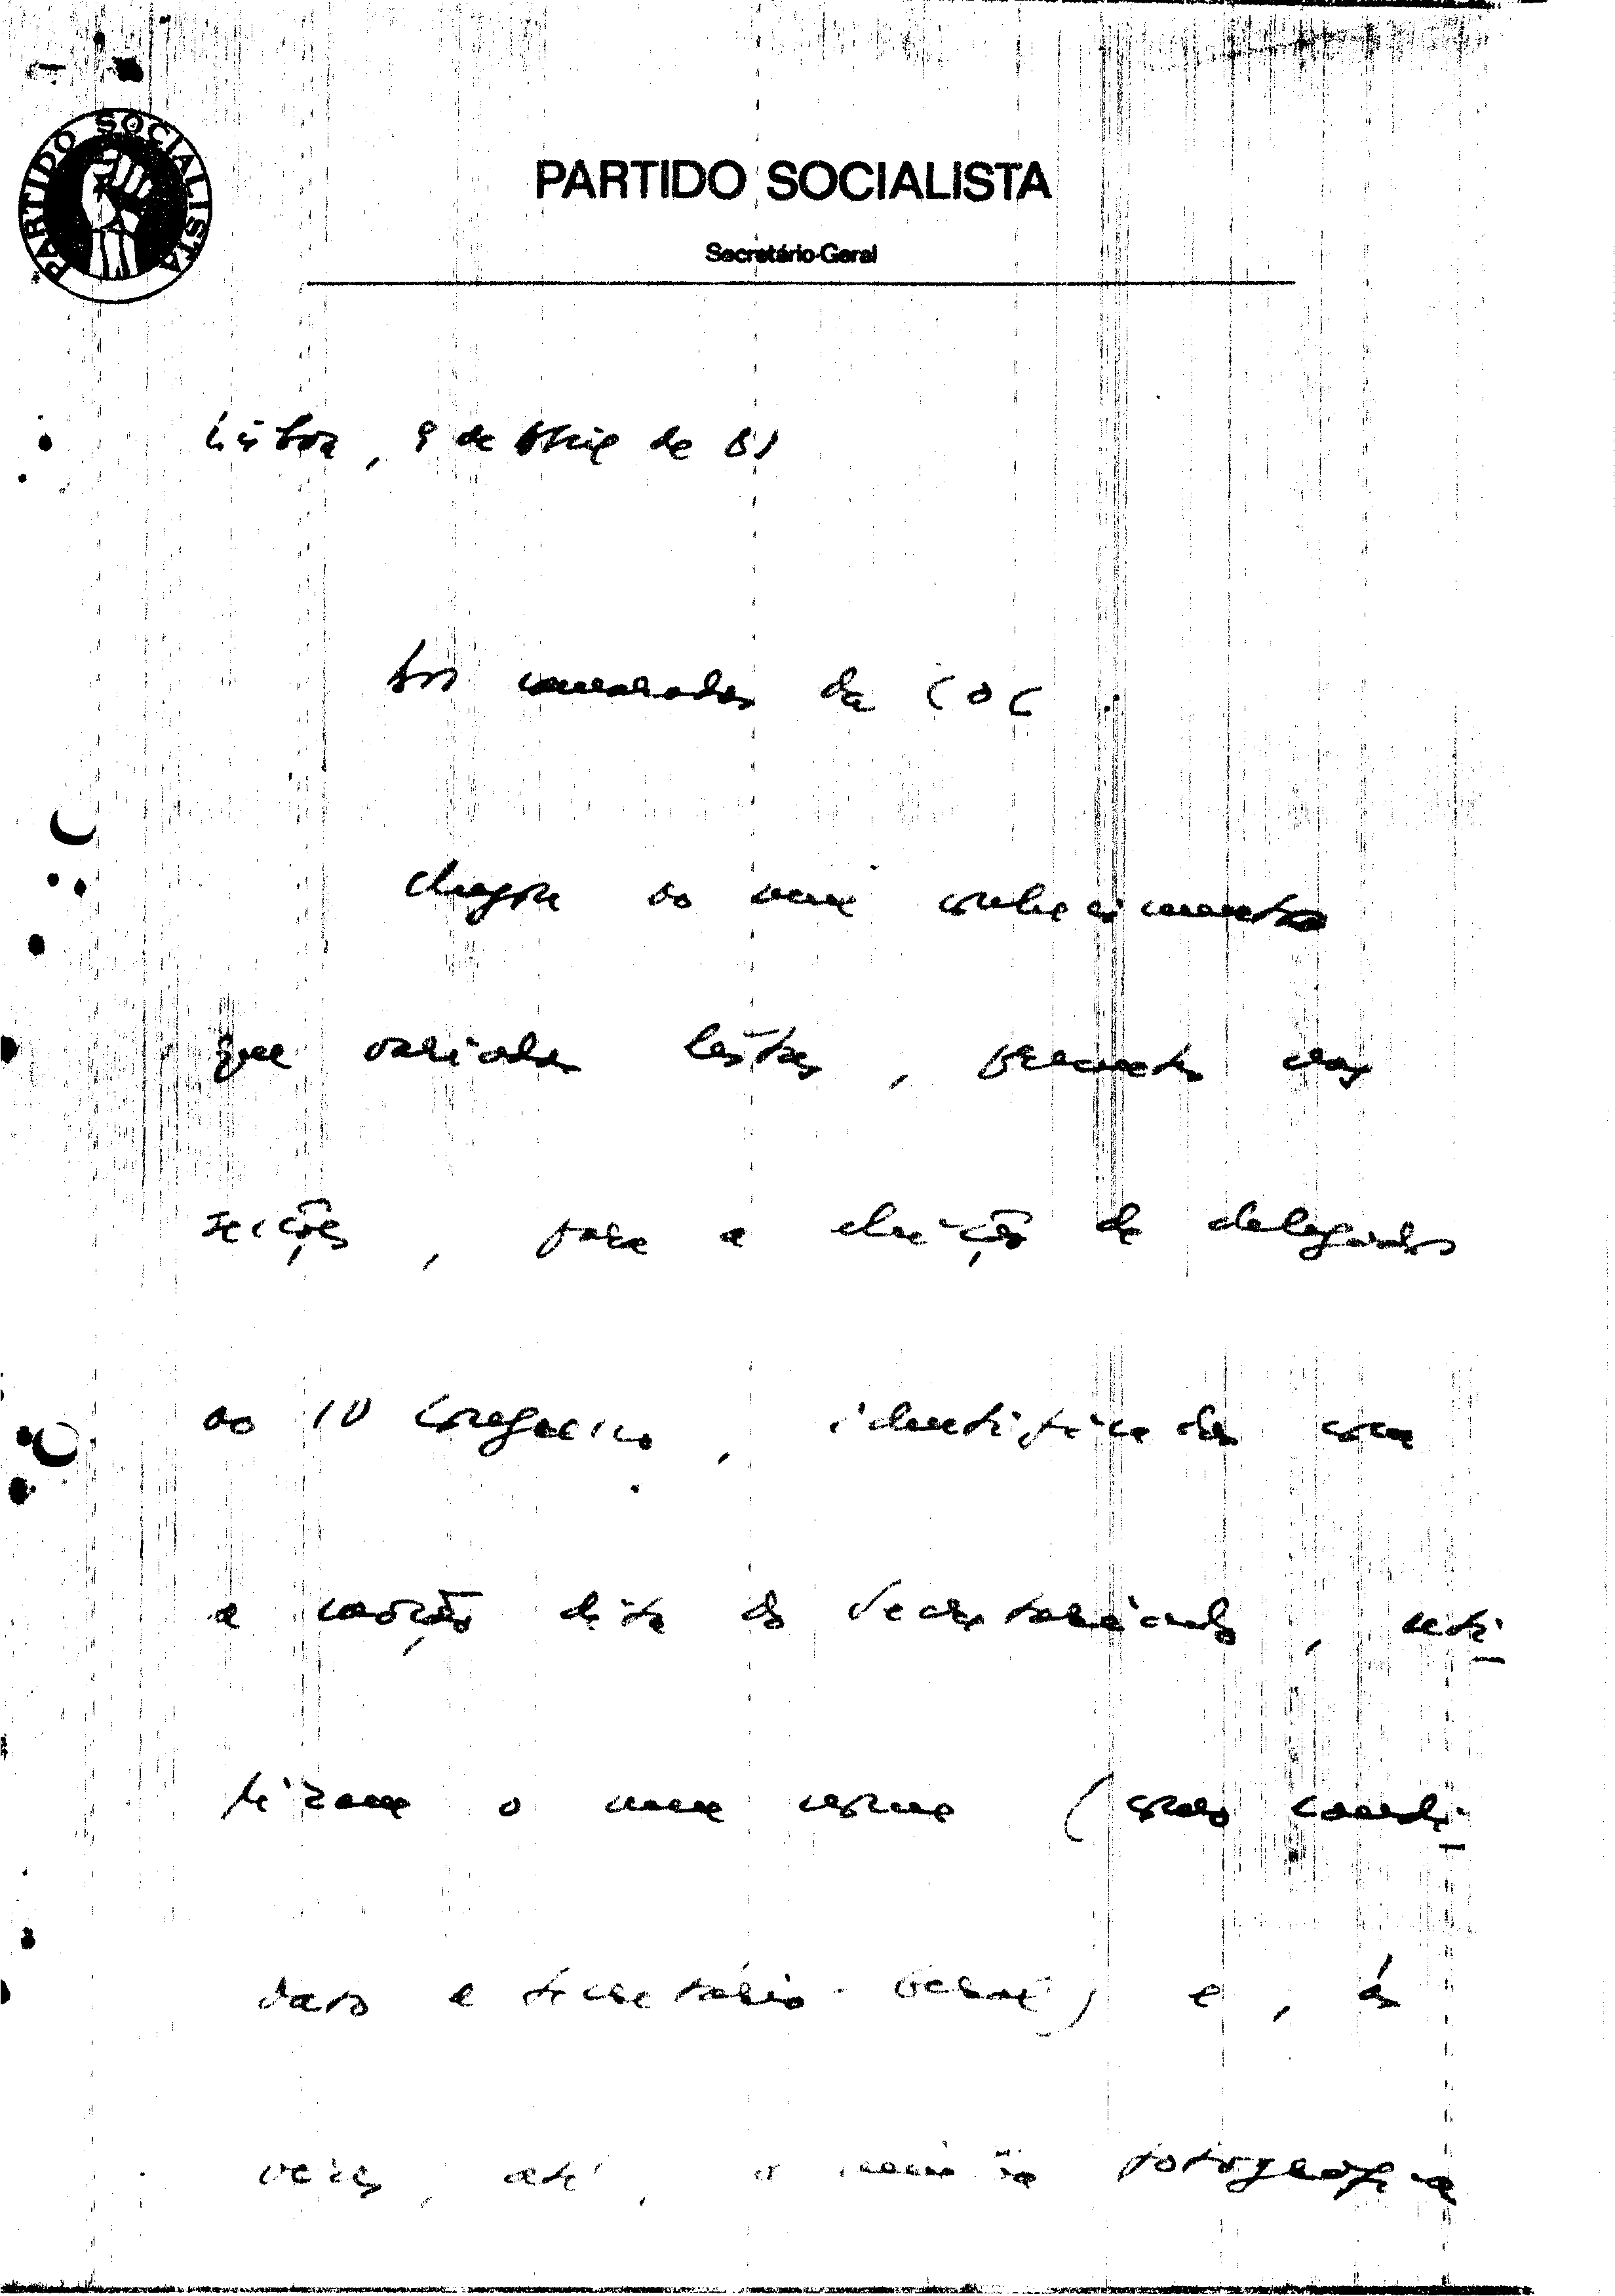 PARTIDO SOCIALISTA
PARTIDO SOCIALISTA
Secretário-Geral
Lisboa, 9 de Abril de 81
Aos camaradas da COC
Chegou ao meu conhecimento
que variadas listas, presentes nas
secções, para a eleição de delegados
ao IV Congresso, identificadas com
a moção dita do Secretariado, uti-
lizam o meu nome (como candi-
dato a Secretário-Geral) e, às
vezes, até, a minha fotografia